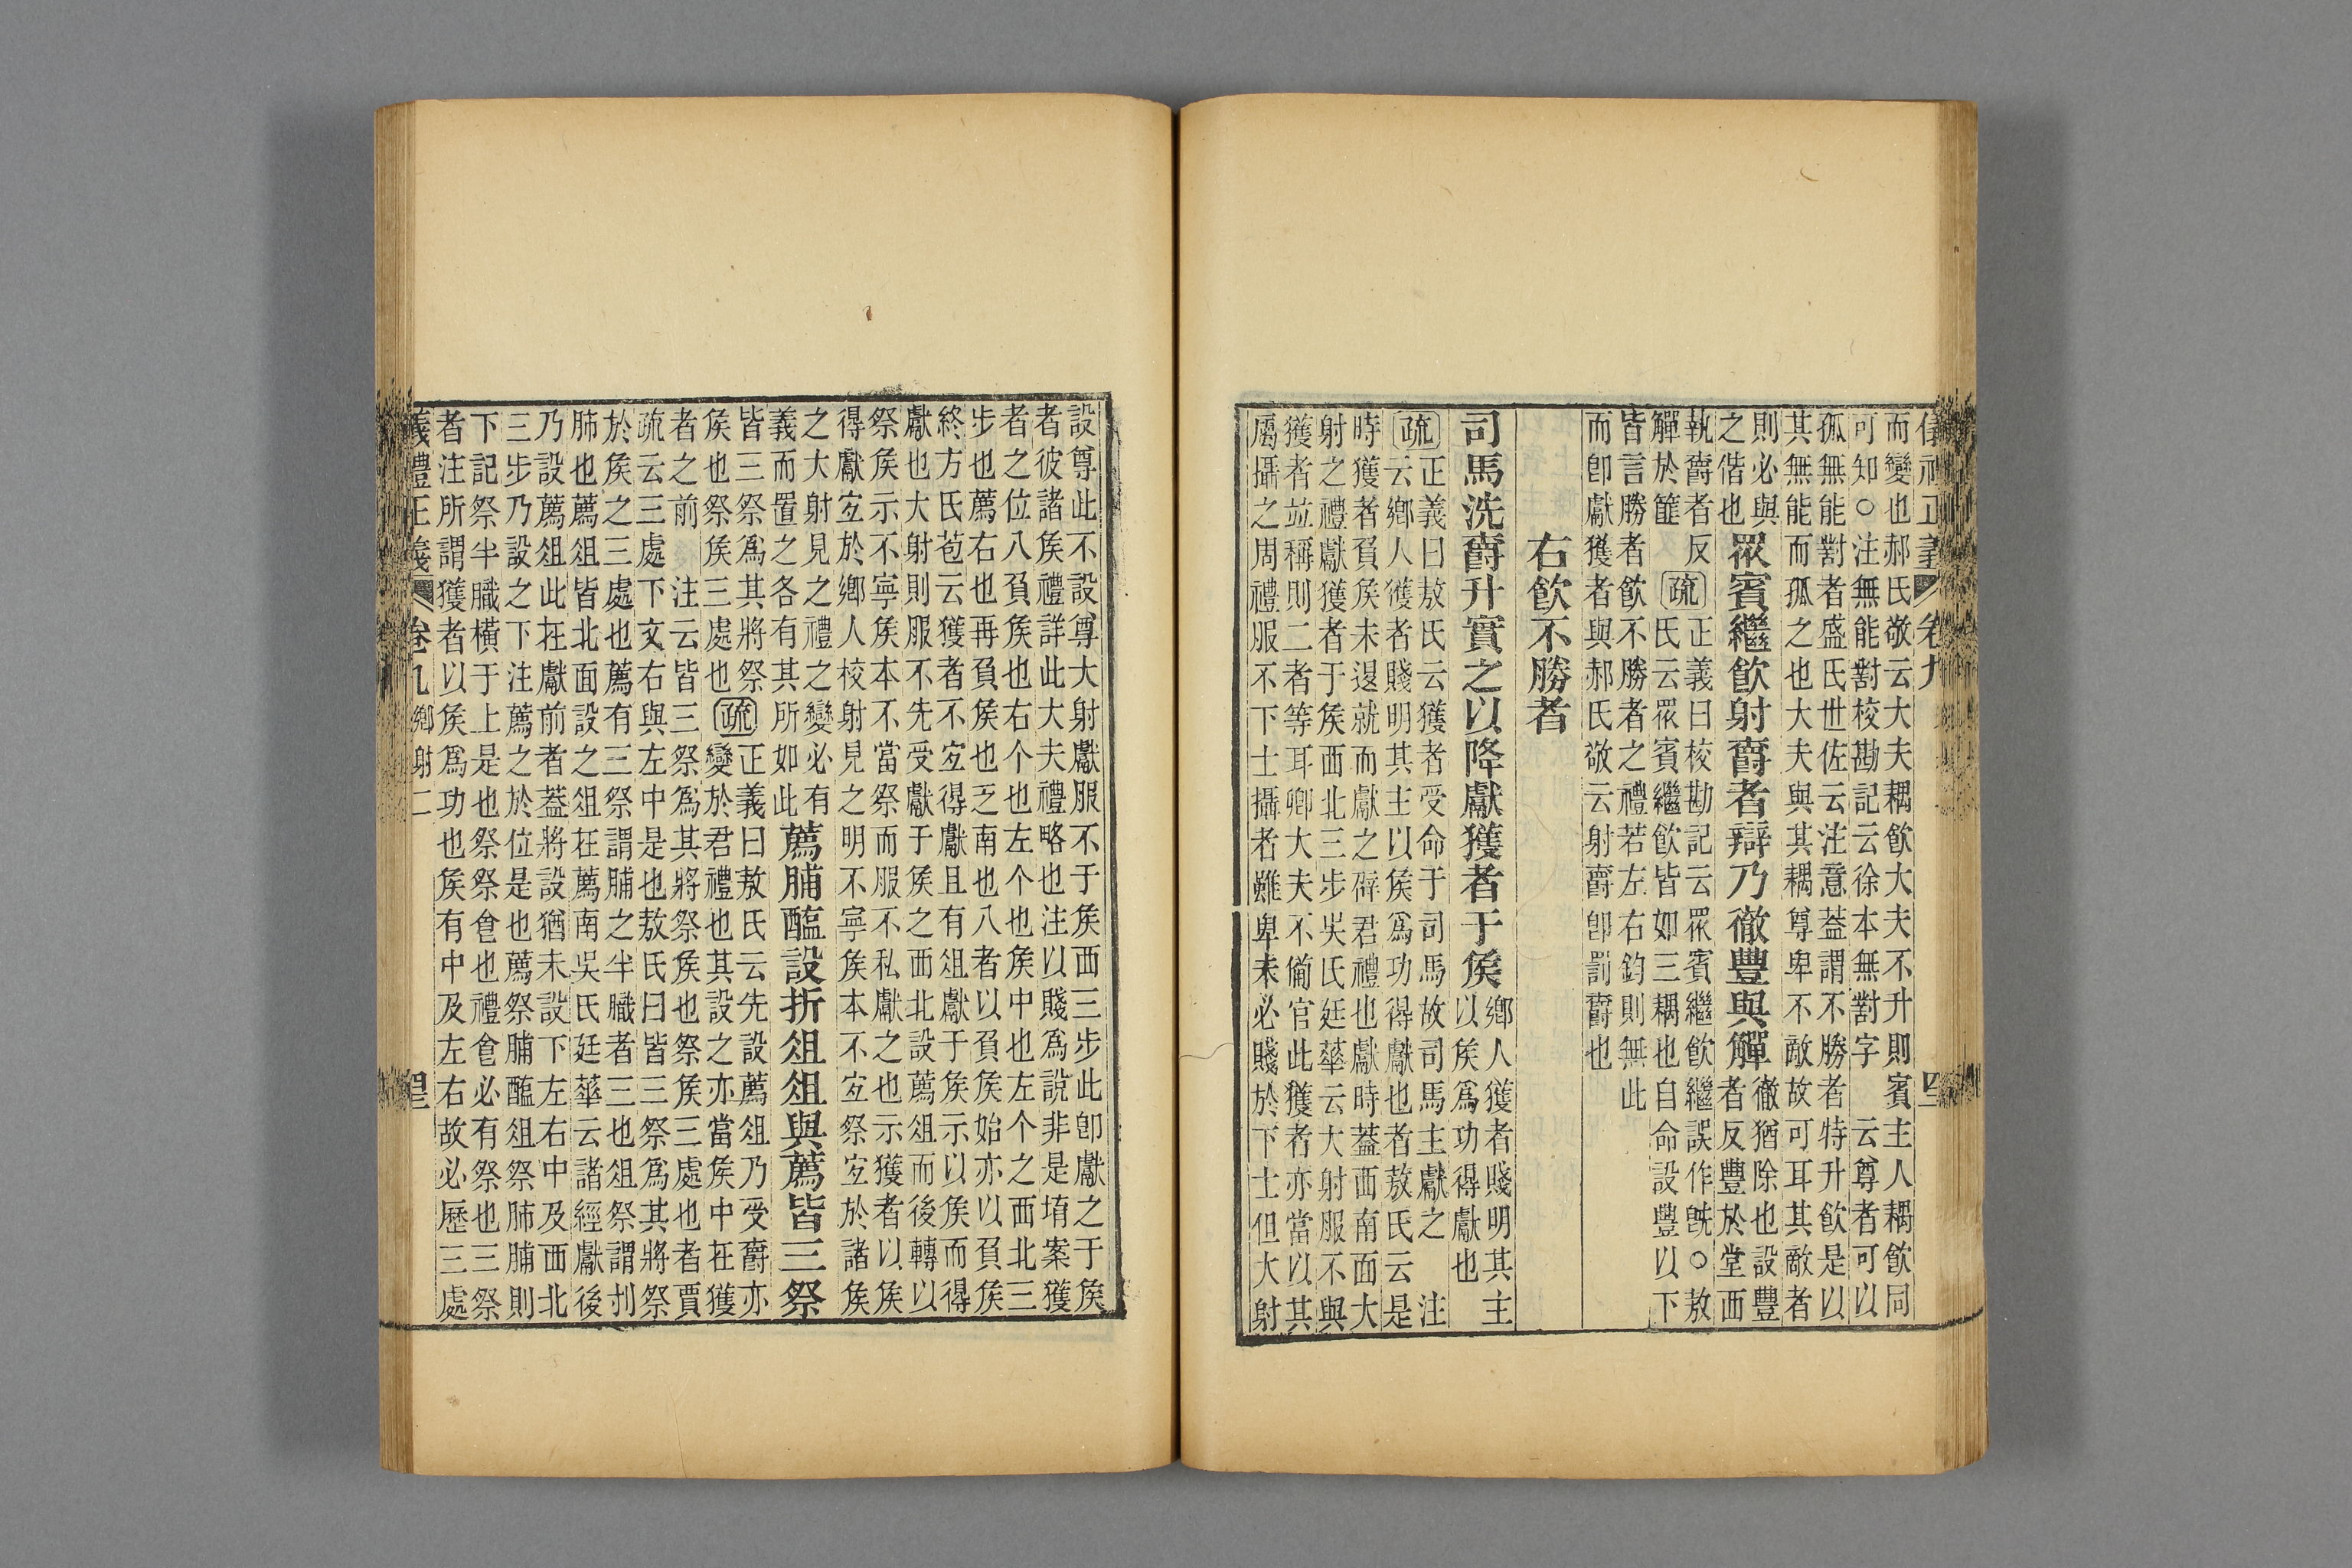 儀禮正義 卷九
而變也郝氏敬云大夫耦飮大夫不升則賓主人耦飮同
可知○注無能對校勘記云徐本無對字 云尊者可以
孤無能對者盛氏世佐云注意葢謂不勝者特升飮是以
其無能而孤之也大夫與其耦尊卑不敵故可耳其敵者
則必與
之偕也
眾賓繼飮射爵者辯乃徹豐與觶
徹猶除也設豐
者反豐於堂西
執爵者反
觶於篚
疏
正義曰校勘記云眾賓繼飮繼誤作旣○敖
氏云眾賓繼飮皆如三耦也自命設豐以下
皆言勝者飮不勝者之禮若左右鈞則無此
而卽獻獲者與郝氏敬云射爵卽罰爵也
右飮不勝者
司馬洗爵升實之以降獻獲者于矦
鄉人獲者賤明其主
以矦爲功得獻也
疏
正義曰敖氏云獲者受命于司馬故司馬主獻之 注
云鄉人獲者賤明其主以矦爲功得獻也者敖氏云是
時獲者負矦未退就而獻之辟君禮也獻時葢西南面大
射之禮獻獲者于矦西北三步吳氏廷華云大射服不與
獲者竝稱則二者等耳卿大夫不備官此獲者亦當以其
屬攝之周禮服不下士攝者雖卑未必賤於下士但大射
設尊此不設尊大射獻服不于矦西三步此卽獻之于矦
者彼諸矦禮詳此大夫禮略也注以賤爲說非是堉案獲
者之位八負矦也右个也左个也矦中也左个之西北三
步也薦右也再負矦也乏南也八者以負矦始亦以負矦
終方氏苞云獲者不宜得獻且有俎獻于矦示以矦而得
獻也大射則服不先受獻于矦之西北設薦俎而後轉以
祭矦示不寧矦本不當祭而服不私獻之也示獲者以矦
得獻宜於鄉人校射見之明不寧矦本不宜祭宜於諸矦
之大射見之禮之變必有
義而置之各有其所如此
薦脯醢設折俎俎與薦皆三祭
皆三祭爲其將祭
矦也祭矦三處也
疏
正義曰敖氏云先設薦俎乃受爵亦
變於君禮也其設之亦當矦中在獲
者之前 注云皆三祭爲其將祭矦也祭矦三處也者賈
疏云三處下文右與左中是也敖氏曰皆三祭爲其將祭
於矦之三處也薦有三祭謂脯之半膱者三也俎祭謂刌
肺也薦俎皆北面設之俎在薦南吳氏廷華云諸經獻後
乃設薦俎此在獻前者葢將設猶未設下左右中及西北
三步乃設之下注薦之於位是也薦祭脯醢俎祭肺脯則
下記祭半膱橫于上是也祭祭𠊊也禮𠊊必有祭也三祭
者注所謂獲者以矦爲功也矦有中及左右故必歷三處
義禮正義 卷九 鄉射二